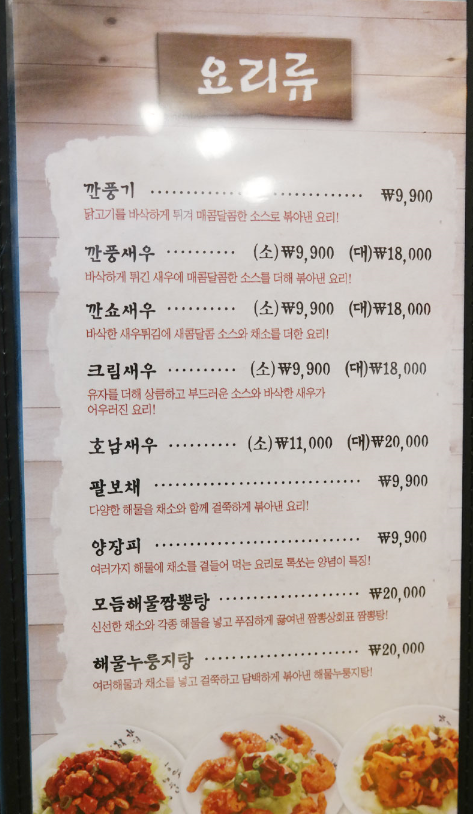 요리류
깐풍기 ······························ ₩9,900
닭고기를 바삭하게 튀겨 매콤달콤한 소스로 볶아낸 요리!
깐풍새우 ·········· (소)₩9,900 (대)₩18,000
바삭하게 튀긴 새우에 매콤달콤한 소스를 더해 볶아낸 요리!
깐쇼새우 ·········· (소)₩9,900 (대)₩18,000
바삭한 새우튀김에 새콤달콤 소스와 채소를 더한 요리!
크림새우 ·········· (소)₩9,900 (대)₩18,000
유자를 더해 상큼하고 부드러운 소스와 바삭한 새우가
어우러진 요리!
호남새우 ·········· (소)₩11,000 (대)₩20,000
팔보채 ······························ ₩9,900
다양한 해물을 채소와 함께 걸쭉하게 볶아낸 요리!
양장피 ······························ ₩9,900
여러가지 해물에 채소를 곁들어 먹는 요리로 톡쏘는 양념이 특징!
모듬해물짬뽕탕 ····················· ₩20,000
신선한 채소와 각종 해물을 넣고 푸짐하게 끓여낸 짬뽕상회표 짬뽕탕!
해물누룽지탕 ······················ ₩20,000
여러해물과 채소를 넣고 걸쭉하고 담백하게 볶아낸 해물누룽지탕!